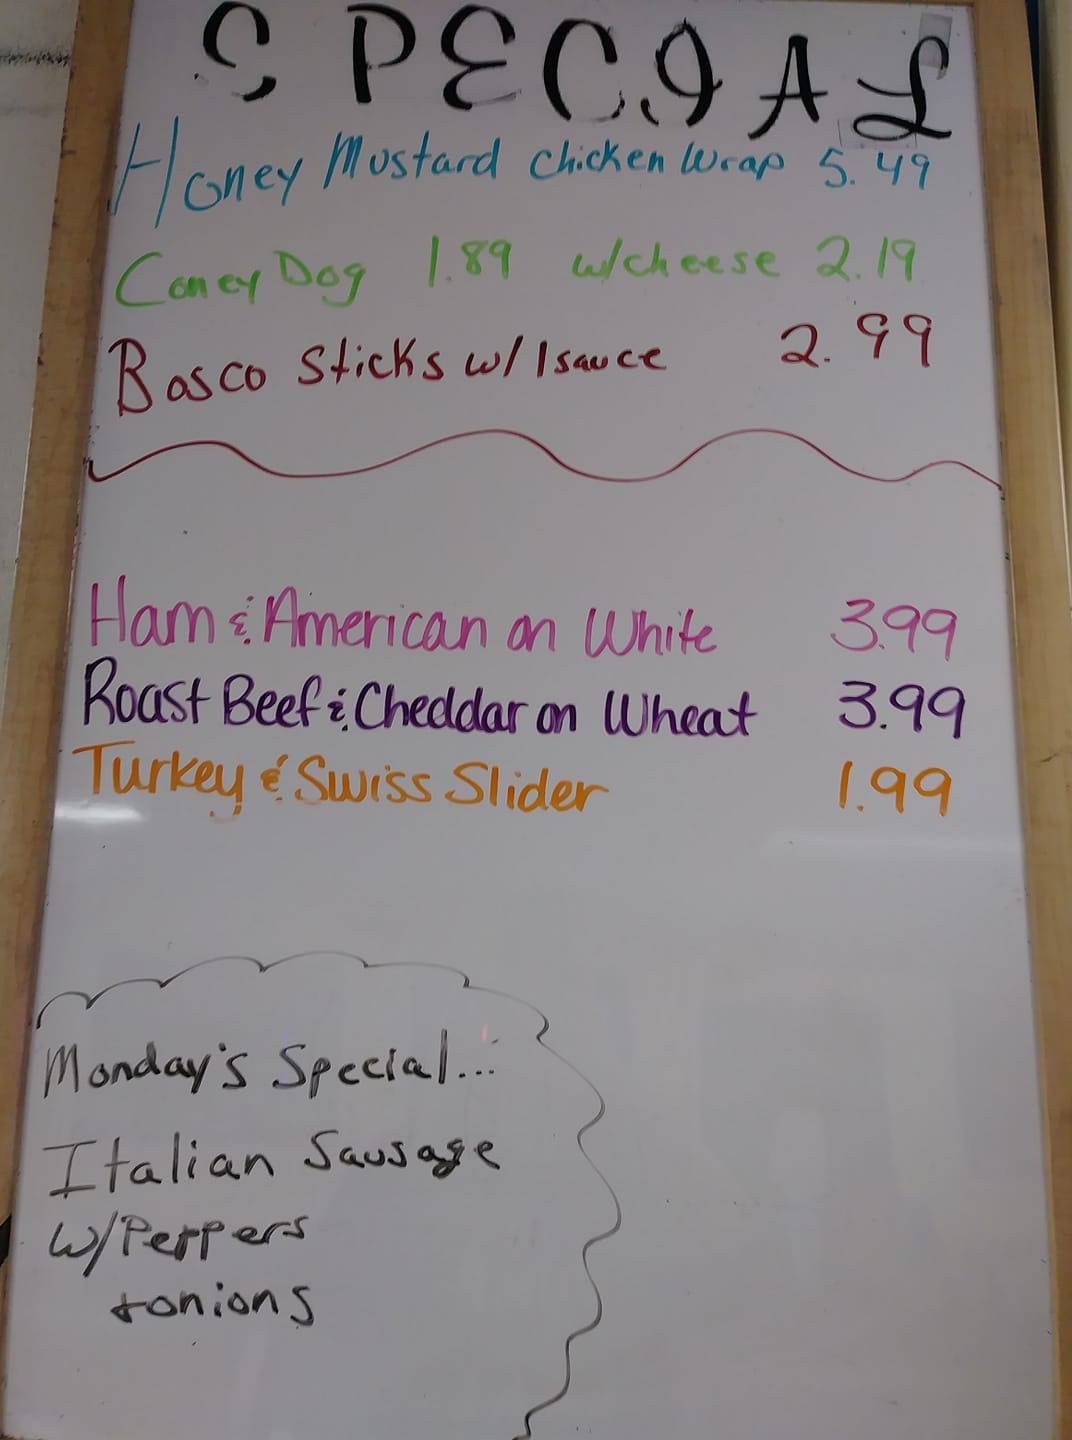 SPECIAL
Honey Mustard Chicken Wrap 5.49
Coney Dog 1.89 w/cheese 2.19
Bosco Sticks w/ 1 sauce 2.99
Ham & American on White 3.99
Roast Beef & Cheddar on Wheat 3.99
Turkey & Swiss Slider 1.99
Monday's Special...
Italian Sausage
w/Peppers
+onions